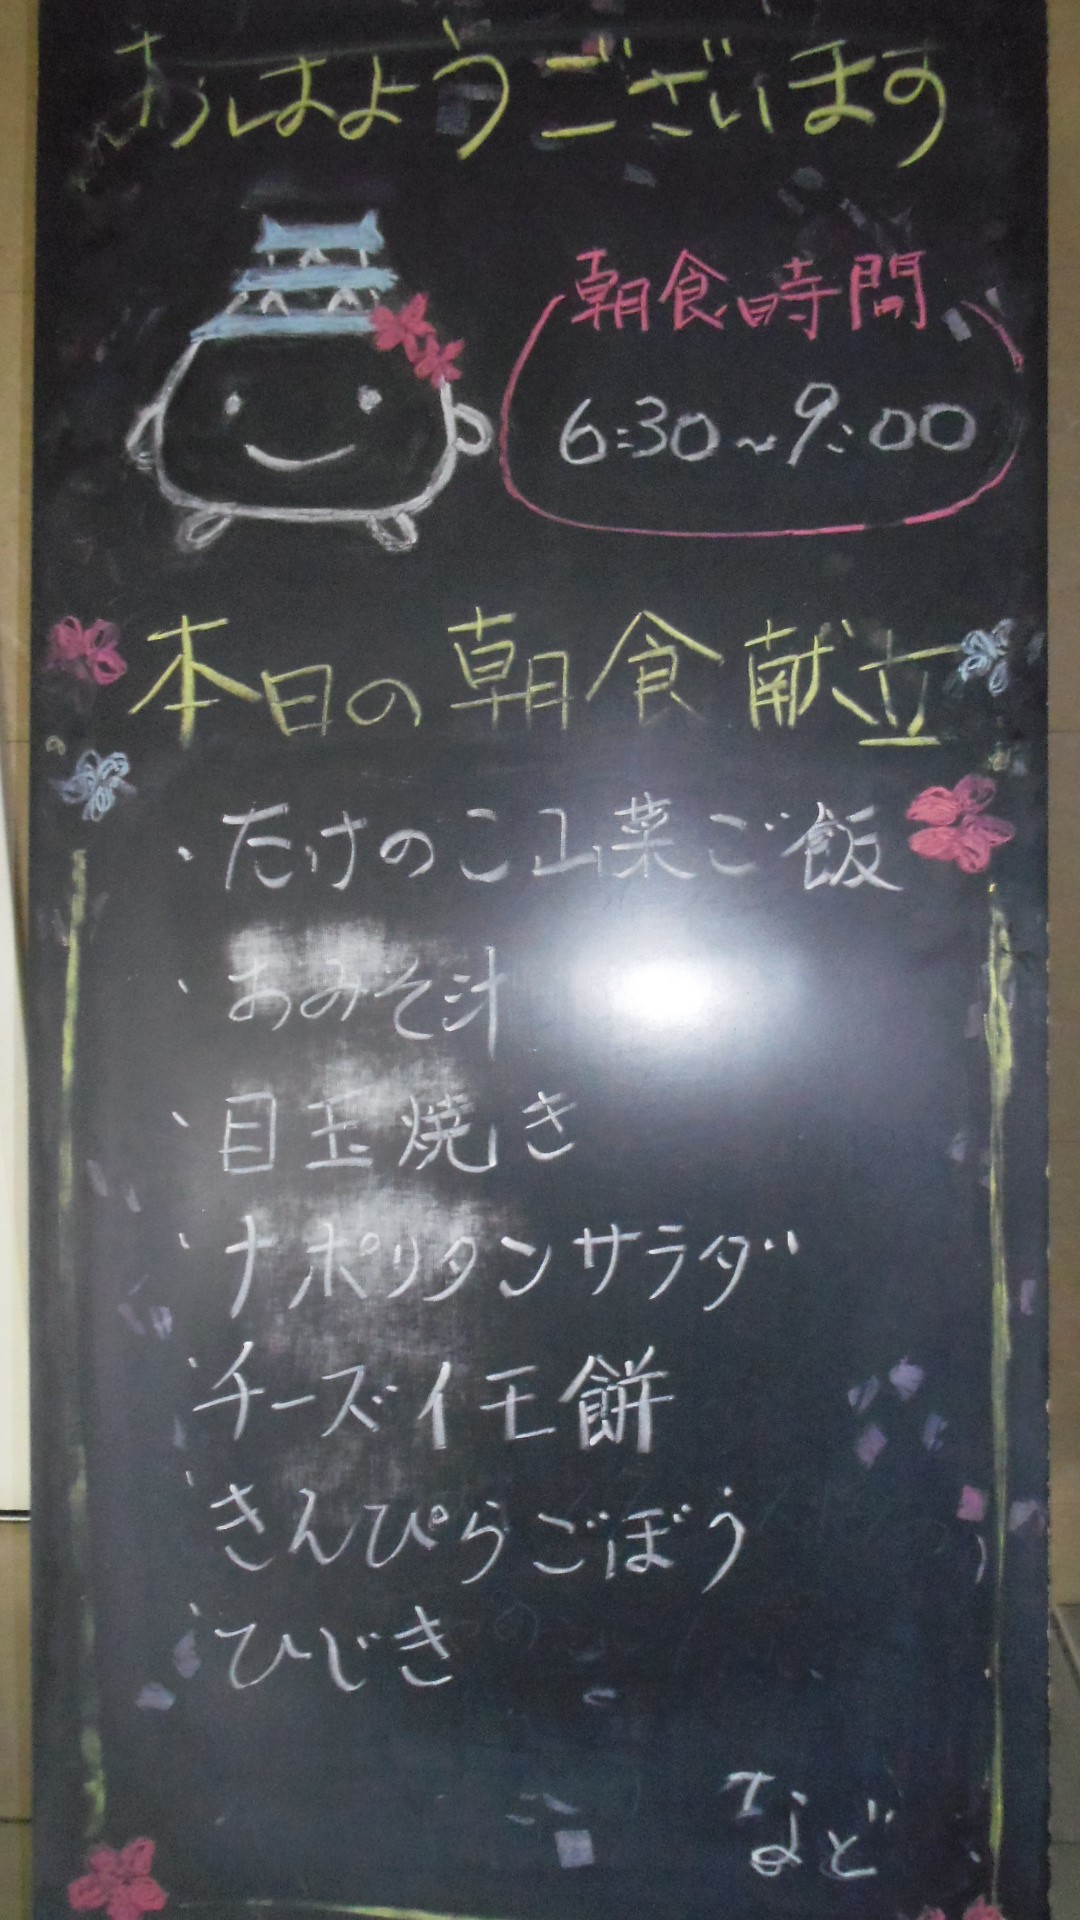 おはようございます
朝食時間
6:30~9:00
本日の朝食献立
・たけのこ山菜ご飯
・おみそ汁
・目玉焼き
・ナポリタンサラダ
・チーズイモ餅
・きんぴらごぼう
・ひじき
など